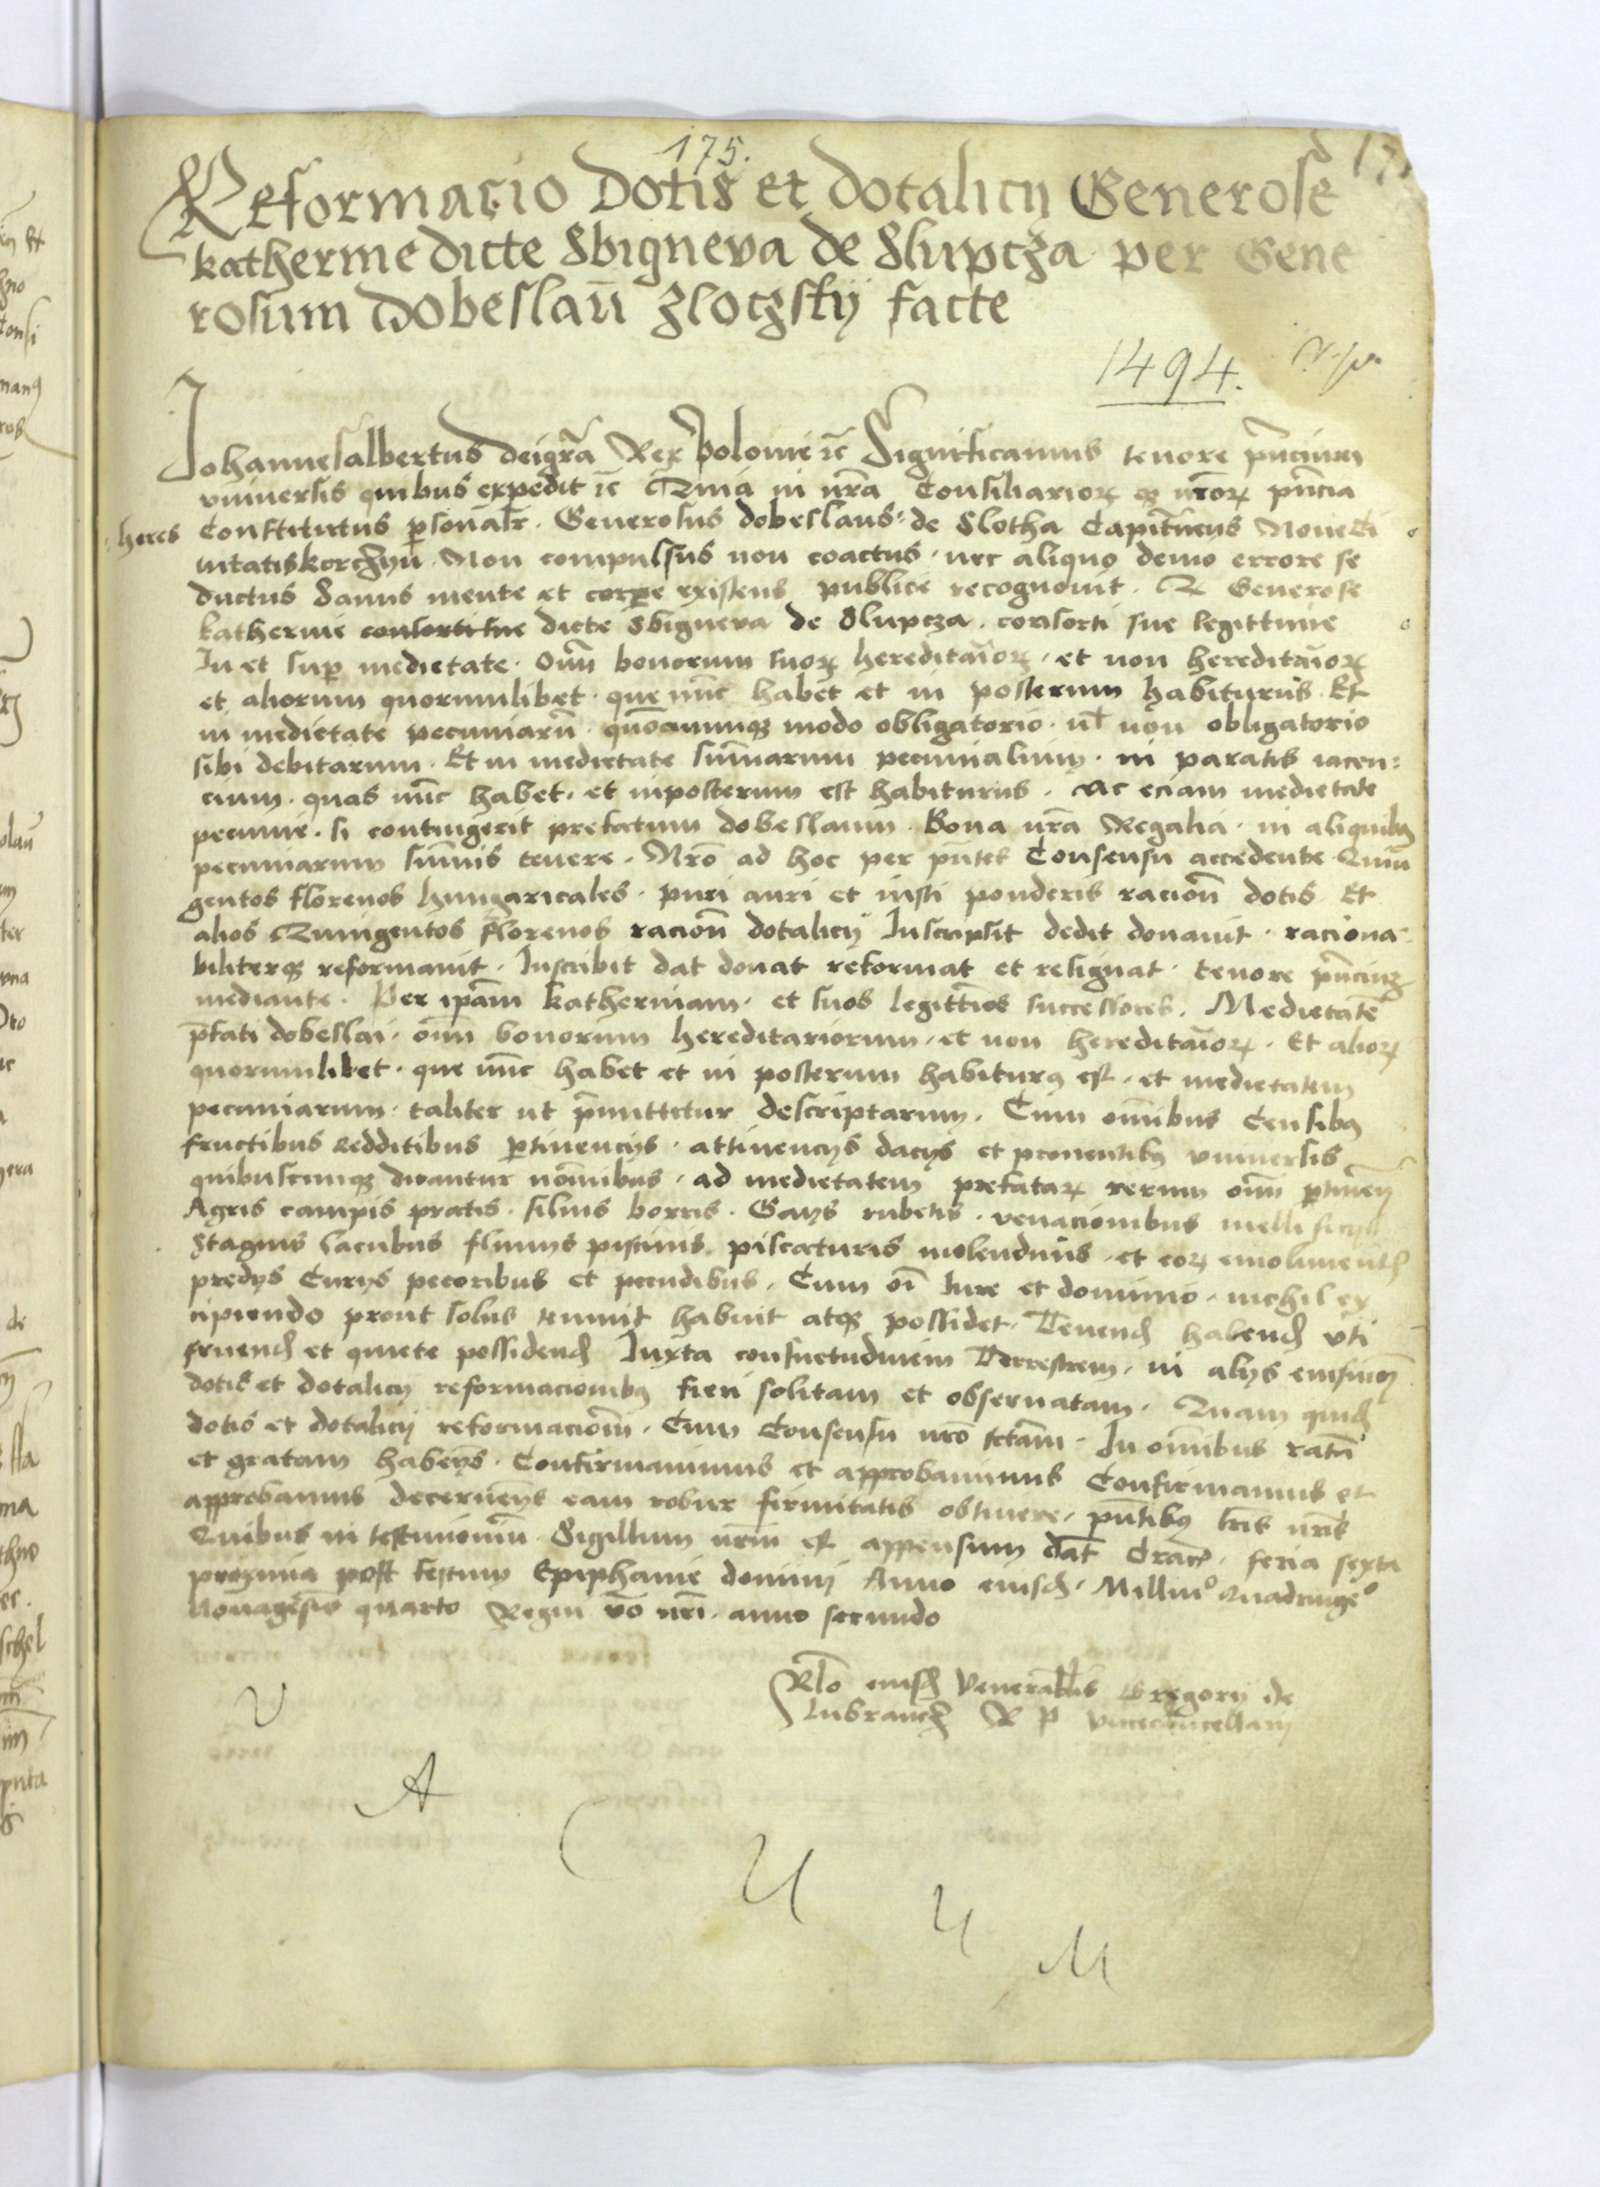 175.
Reformacio Dotis et dotalicij Generose
katherine dicte Sbigneva de Slupcza per Gene
rosum Dobeslaū Zloczskij facte
1494.
Johannesalbertus deigrā Rex Polonie ⁊c̄ Significamus tenore pn̄cium
vniuersis quibus expedit ⁊c̄ Quia in nrā Consiliarioꝝ qꝫ nrōꝝ pn̄cia
heres Constitutus ꝑsonalr̄. Generosus dobeslaus de Slotha Capitn̄eus Noue Ci
uitatiskorczyn̄. Non compulsus non coactus. nec aliquo deuio errore se
ductus Sanus mente et corꝑe existens publice recognouit. Q Generose
katherine consorti sue dicte Sbigneva de Slupcza. consorti sue legittime
In et suꝑ medietate. Om̄ bonorum suoꝝ hereditārioꝝ. et non hereditārioꝝ
et aliorum quorumlibet. que nūc habet et in posterum habiturus. Et
in medietate pecuniarū quōcumqꝫ modo obligatorio. ul̄ non obligatorio
sibi debitarum. Et in medietate sūmarum pecunialium. in paratis iacen:
cium. quas nūc habet. et inposterum est habiturus. Ac eciam medietate
pecunie. si contingerit prefatum dobeslaum. Bona nrā Regalia. in aliquibꝰ
pecuniarum sūmis tenere. Nrō ad hoc per pn̄tes Consensu accedente. Quin
gentos florenos hungaricales. puri auri et iusti ponderis racioē dotis Et
alios Quingentos florenos racioē dotalicij Inscripsit dedit donauit. raciona
biliterqꝫ reformauit. Inscribit dat donat reformat et resignat. tenore pn̄ciuꝫ
mediante. Per ipām katherinam. et suos legittīos successores. Medietatē
p̄fati dobeslai. om̄ bonorum hereditariorum. et non hereditārioꝝ. Et alioꝝ
quorumlibet. que nūc habet et in posterum habiturꝰ est. et medietatem
pecuniarum. taliter ut p̄mittitur descriptarum. Cum om̄ibus Censibꝰ
fructibus redditibus ꝑtinencijs. attinencijs dacijs et prouentibꝰ vniuersis
quibuscumqꝫ dicantur nōminibus. ad medietatem prefataꝝ rerum om̄ ꝑtinen̄
Agris campis pratis. siluis borris. Gays rubetis. venacionibus mellificijs
Stagnis lacubus fluuijs piscinis. piscaturis molendinis. et eoꝝ emolument
predijs Curijs pecoribus et pecudibus. Cum oī Iure et dominio. nichil ex
cipiendo prout solus tenuit habuit atqꝫ possidet. Tenend habend vti
fruend et quiete possidend Iuxta consuetudinem Terrestrem. in alijs eiusmōi
dotis et dotalicij reformacionibꝰ fieri solitam et obseruatam. Quam quid
dotis et dotalicij reformacioēm. Cum Consensu nrō fctām. In om̄ibus ratā
et gratam haben̄s. Confirmauimus et approbauimus Confirmamus et
approbamus decernen̄s eam robur firmitatis obtinere. pn̄tibꝰ lr̄is nrīs
Quibus in testimoniū. Sigillum nrm̄ est appensum dat̄ Crac̄. feria sexta
proxima post festum Epiphanie domini Anno eiusd. Millīoº Quadringēº
Nonagesīo quarto Regni vō nrī. anno secundo
Rlō eiusd Venerabilis Gregorij de
lubrancz R P vicecancellarij
V
A
C
U
U
M